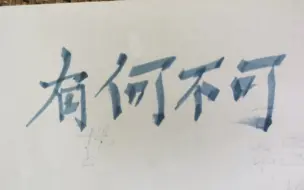 有何不可